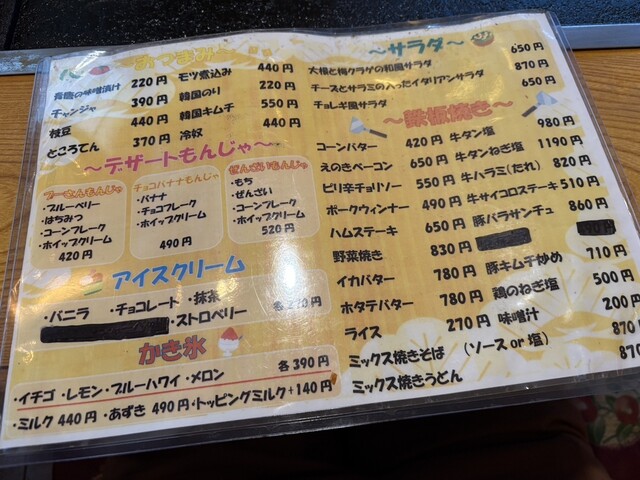 おつまみ
青唐の味噌漬け 220円 モツ煮込み 440円
チャンジャ 390円 韓国のり 220円
枝豆 440円 韓国キムチ 550円
ところてん 370円 冷奴 440円
～デザートもんじゃ～
プーさんもんじゃ
・ブルーベリー
・はちみつ
・コーンフレーク
・ホイップクリーム
420円
チョコバナナもんじゃ
・バナナ
・チョコフレーク
・ホイップクリーム
490円
ぜんざいもんじゃ
・もち
・ぜんざい
・コーンフレーク
・ホイップクリーム
520円
アイスクリーム
・バニラ ・チョコレート ・抹茶
・ストロベリー 各270円
かき氷
各390円
・イチゴ・レモン・ブルーハワイ・メロン
・ミルク 440円 ・あずき 490円 ・トッピングミルク+140円
～サラダ～
大根と梅クラゲの和風サラダ 650円
チーズとサラミの入ったイタリアンサラダ 870円
チョレギ風サラダ 650円
～鉄板焼き～
コーンバター 420円 牛タン塩 980円
えのきベーコン 650円 牛タンねぎ塩 1190円
ピリ辛チョリソー 550円 牛ハラミ(たれ) 820円
ポークウィンナー 490円 牛サイコロステーキ 510円
ハムステーキ 650円 豚バラサンチュ 860円
野菜焼き 830円
イカバター 780円 豚キムチ炒め 710円
ホタテバター 780円 鶏のねぎ塩 500円
ライス 270円 味噌汁 200円
ミックス焼きそば (ソースor塩) 870
ミックス焼きうどん 870